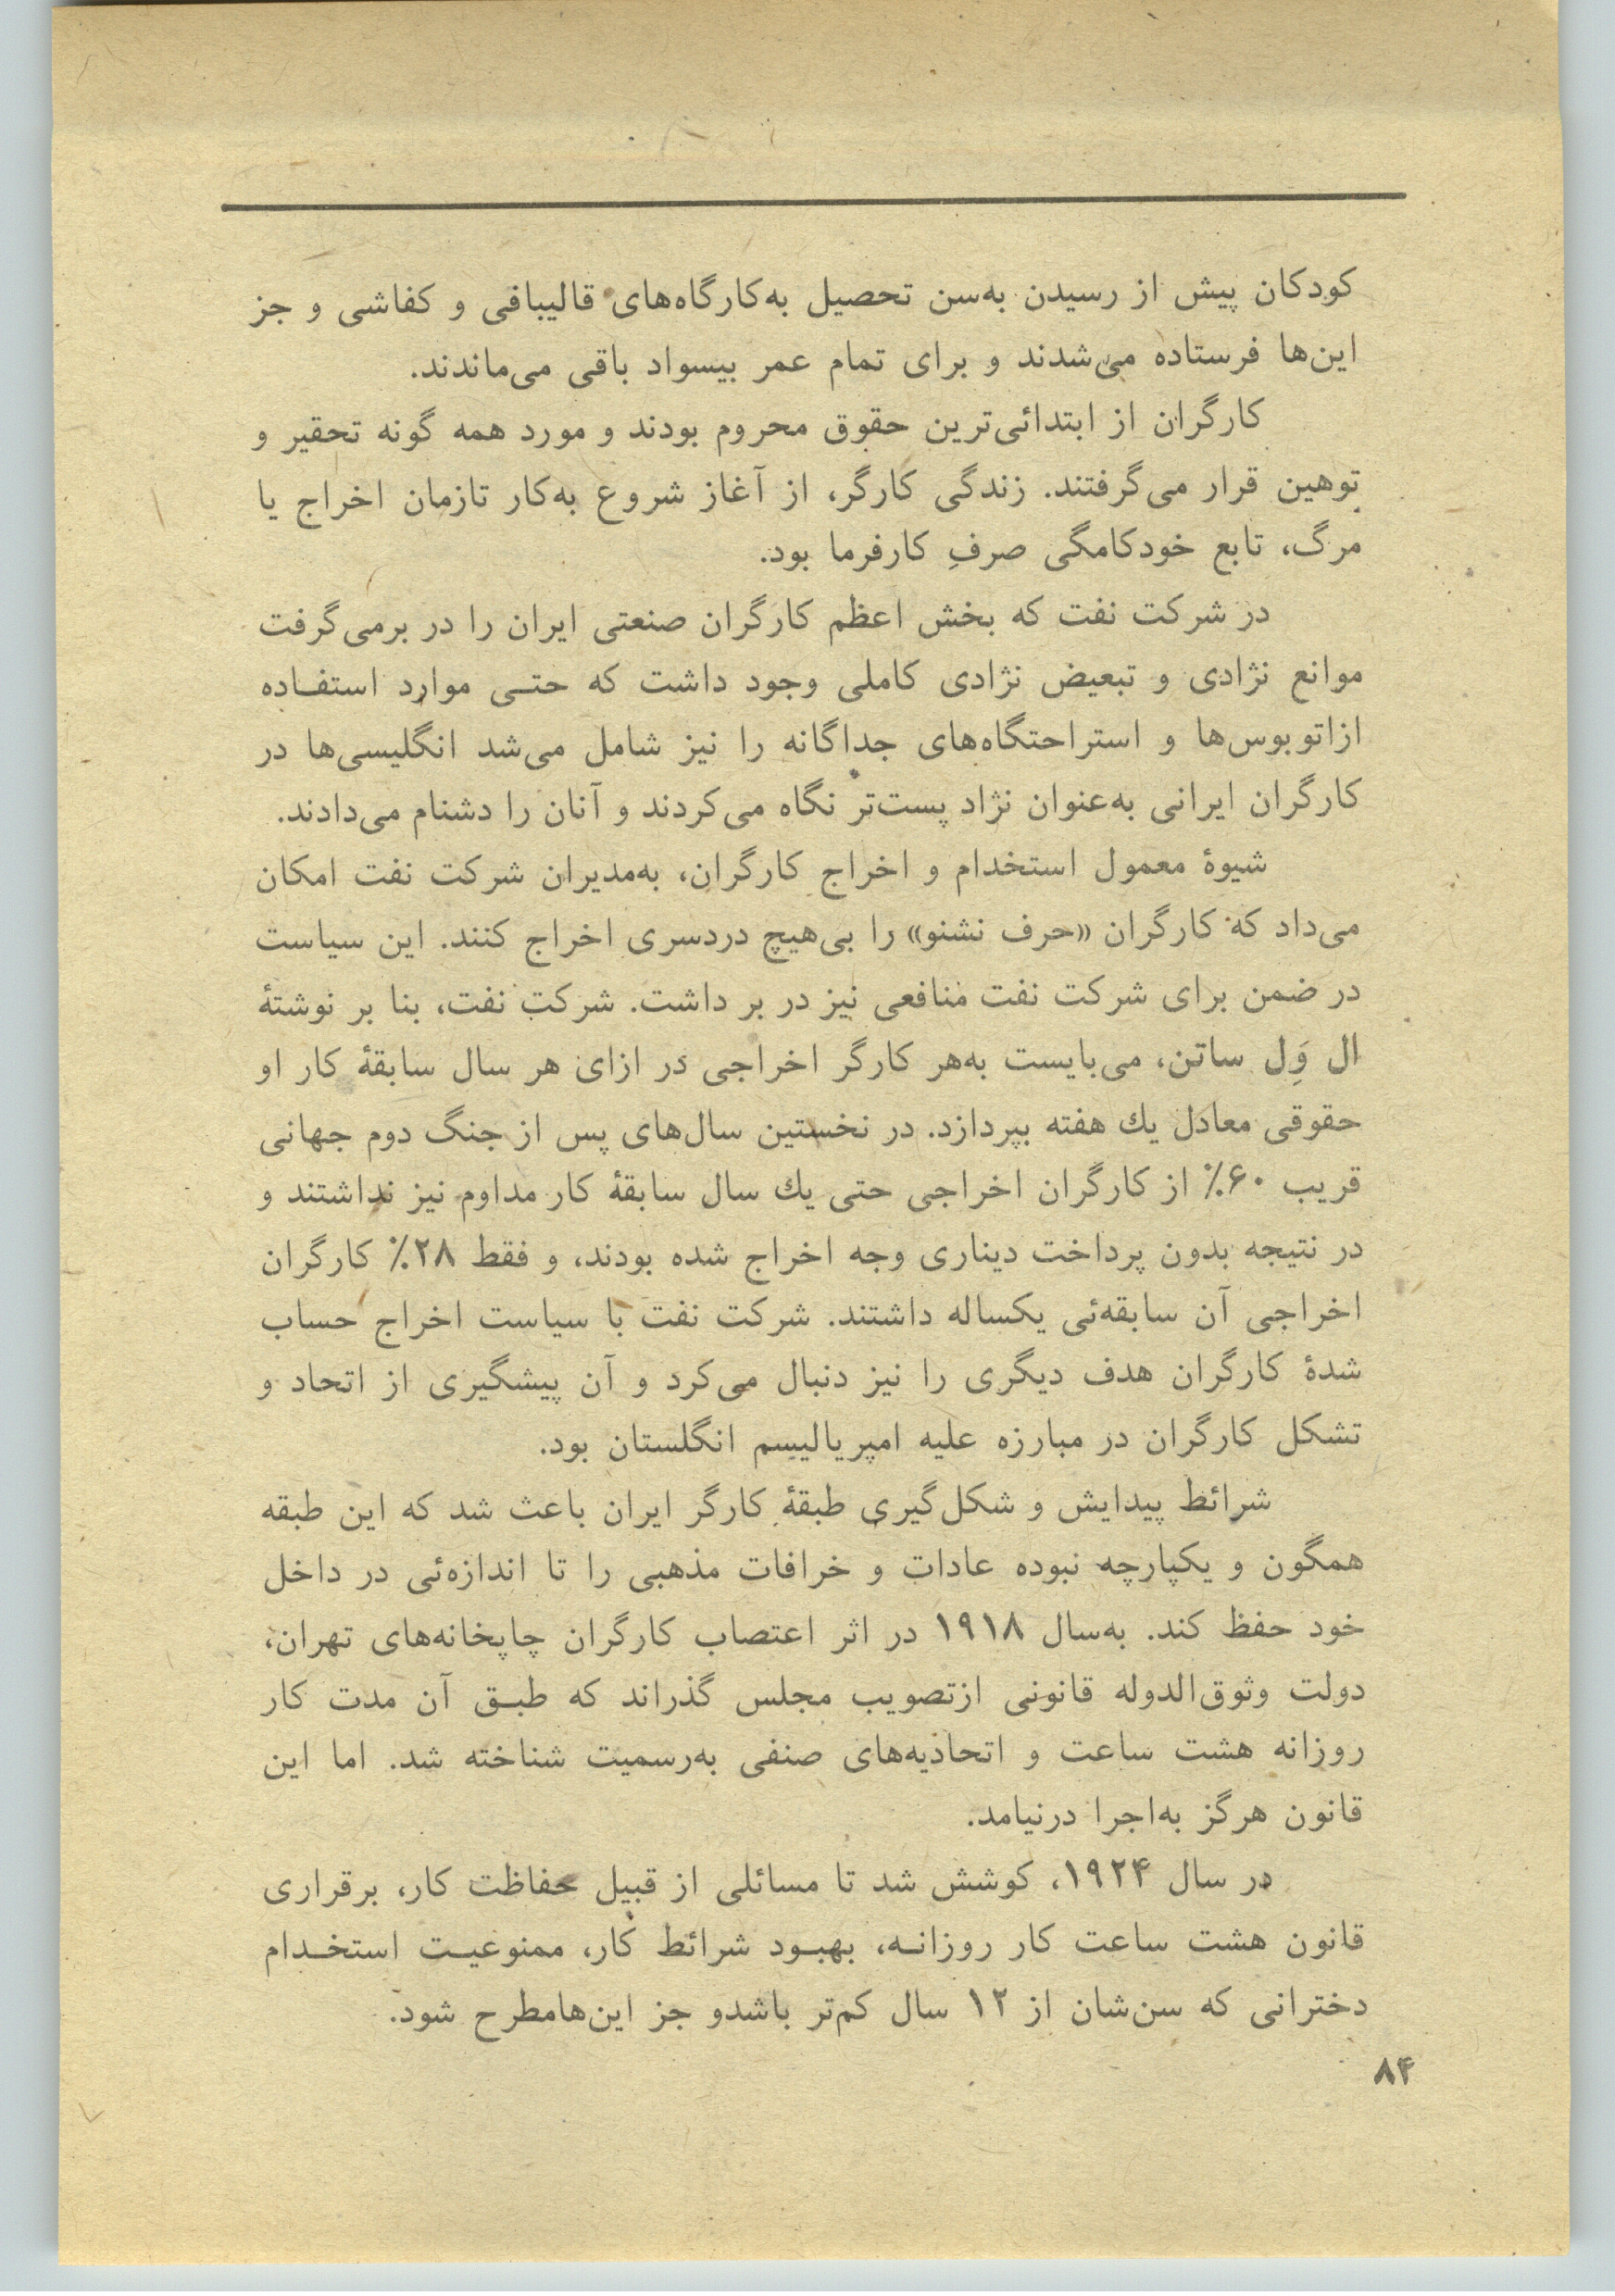 کودکان پیش از رسیدن به‌سن تحصیل به‌کارگاه‌های قالیبافی و کفاشی و جز
این‌ها فرستاده می‌شدند و برای تمام عمر بیسواد باقی می‌ماندند.
کارگران از ابتدائی‌ترین حقوق محروم بودند و مورد همه گونه تحقیر و
توهین قرار می‌گرفتند. زندگی کارگر، از آغاز شروع به‌کار تازمان اخراج یا
مرگ، تابع خودکامگی صرفِ کارفرما بود.
در شرکت نفت که بخش اعظم کارگران صنعتی ایران را در برمی‌گرفت
موانع نژادی و تبعیض نژادی کاملی وجود داشت که حتـی موارد استفـاده
ازاتوبوس‌ها و استراحتگاه‌های جداگانه را نیز شامل می‌شد انگلیسی‌ها در
کارگران ایرانی به‌عنوان نژاد پست‌تر نگاه می‌کردند و آنان را دشنام می‌دادند.
شیوهٔ معمول استخدام و اخراج کارگران، به‌مدیران شرکت نفت امکان
می‌داد که کارگران «حرف نشنو» را بی‌هیچ دردسری اخراج کنند. این سیاست
در ضمن برای شرکت نفت منافعی نیز در بر داشت. شرکت نفت، بنا بر نوشتهٔ
ال وِل ساتن، می‌بایست به‌هر کارگر اخراجی در ازای هر سال سابقهٔ کار او
حقوقی معادل یك هفته بپردازد. در نخستین سال‌های پس از جنگ دوم جهانی
قریب ۶۰٪ از کارگران اخراجی حتی یك سال سابقهٔ کار مداوم نیز نداشتند و
در نتیجه بدون پرداخت دیناری وجه اخراج شده بودند، و فقط ۲۸٪ کارگران
اخراجی آن سابقه‌ئی یکساله داشتند. شرکت نفت با سیاست اخراج حساب
شدهٔ کارگران هدف دیگری را نیز دنبال می‌کرد و آن پیشگیری از اتحاد و
تشکل کارگران در مبارزه علیه امپریالیسم انگلستان بود.
شرائط پیدایش و شکل‌گیری طبقهٔ کارگر ایران باعث شد که این طبقه
همگون و یکپارچه نبوده عادات و خرافات مذهبی را تا اندازه‌ئی در داخل
خود حفظ کند. به‌سال ۱۹۱۸ در اثر اعتصاب کارگران چاپخانه‌های تهران،
دولت وثوق‌الدوله قانونی ازتصویب مجلس گذراند که طبـق آن مدت کار
روزانه هشت ساعت و اتحادیه‌های صنفی به‌رسمیت شناخته شد. اما این
قانون هرگز به‌اجرا درنیامد.
در سال ۱۹۲۴، کوشش شد تا مسائلی از قبیل حفاظت کار، برقراری
قانون هشت ساعت کار روزانـه، بهبـود شرائط کار، ممنوعیـت استخـدام
دخترانی که سن‌شان از ۱۲ سال کم‌تر باشدو جز این‌هامطرح شود.
۸۴